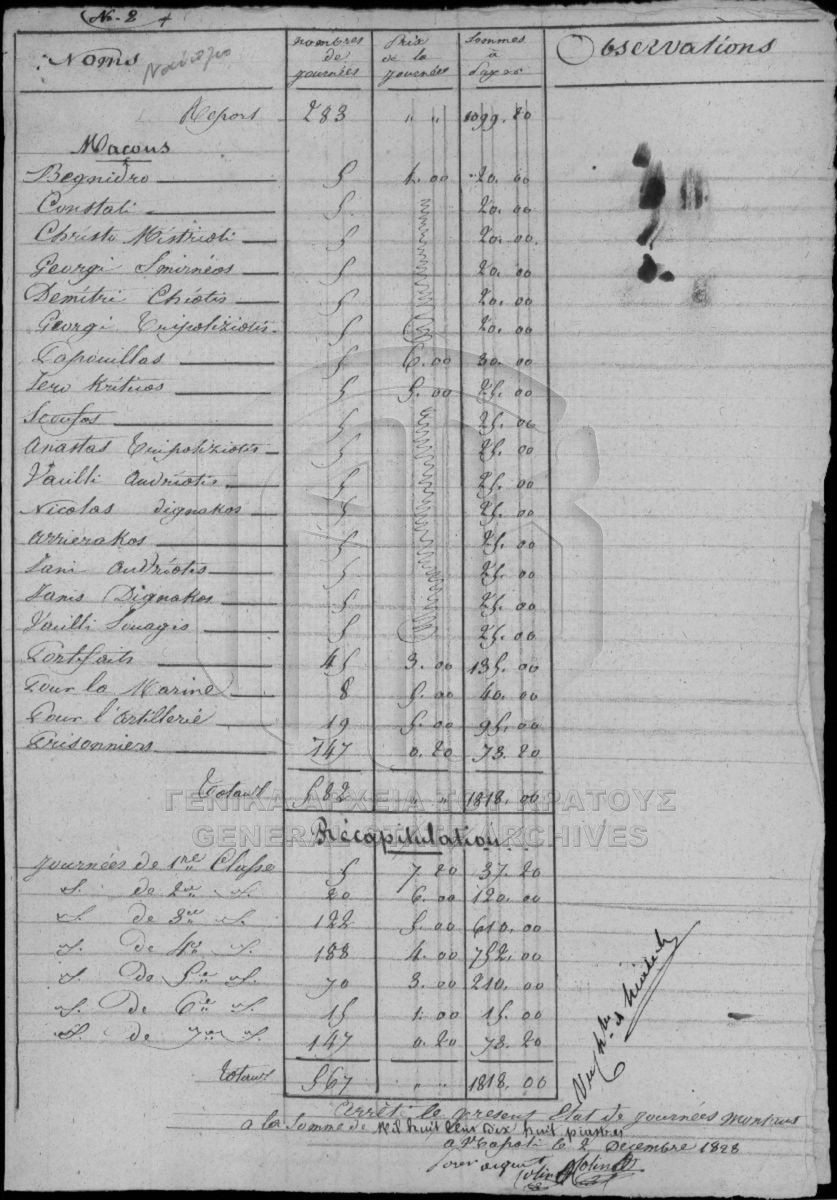 No. 2
Noms nombres de journées Prix de la journées Sommes à Payer Observations
Report 283 " " 1099. 20
Maçons
Begnidro 5 4. 00 20. 00
Constati 5 20. 00
Christo Mistrioti 5 20. 00
Georgi Smirnéos 5 20. 00
Demitri Chiotis 5 20. 00
Georgi Tripoliziotis 5 20. 00
Papouillas 5 6. 00 30. 00
Jero Kriticos 5 5. 00 25. 00
Scoufos 5 25. 00
Anastas Tripoliziotis 5 25. 00
Vasilli Andriotis 5 25. 00
Nicolas Dignakos 5 25. 00
Arrierakos 5 25. 00
Jani Andriotis 5 25. 00
Janis Dignakos 5 25. 00
Vasilli Souagis 5 25. 00
Portefaits 45 3. 00 135. 00
Pour la Marine 8 5. 00 40. 00
Pour l'Artillerie 19 5. 00 95. 00
Prisonniers 147 0. 20 73. 20
Totaux 582 " " 1818. 00
ΓΕΝΙΚΑ ΑΡΧΕΙΑ ΤΟΥ ΚΡΑΤΟΥΣ
GENERAL STATE ARCHIVES
Récapitulation
Journées de 1re Classe 5 7. 20 37. 20
id. de 2me id. 20 6. 00 120. 00
id. de 3me id. 122 5. 00 610. 00
id. de 4e id. 188 4. 00 752. 00
id. de 5e id. 70 3. 00 210. 00
id. de 6e id. 15 1. 00 15. 00
id. de 7me id. 147 0. 20 73. 20
Totaux 567 " " 1818. 00
Arrêté le present Etat de journées montant
a la Somme de Mil huit Cent Dix huit piastres
a Napoli le 2 Decembre 1828